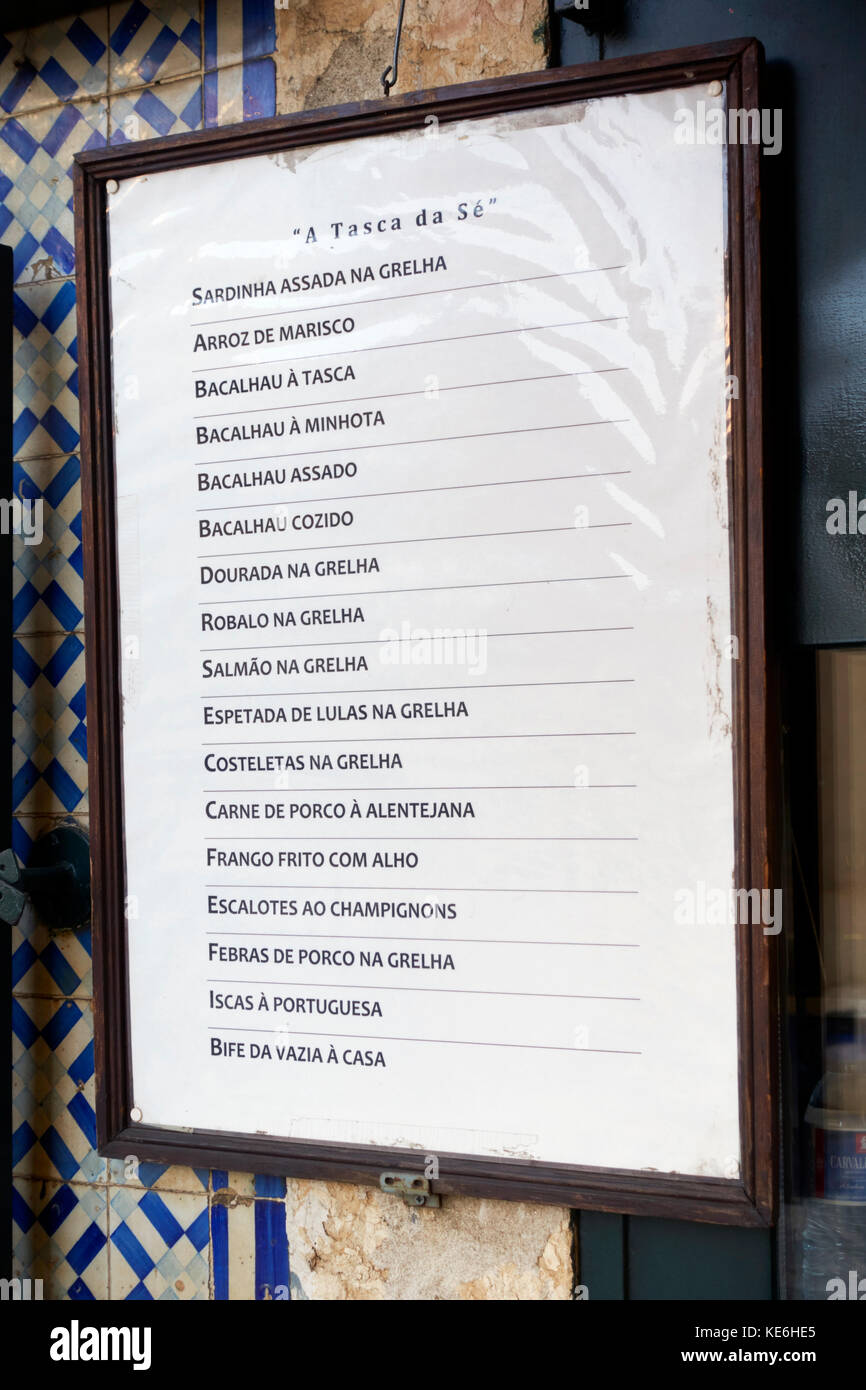 “A Tasca da Sé”
Sardinha assada na grelha
Arroz de marisco
Bacalhau à tasca
Bacalhau à minhota
Bacalhau assado
Bacalhau cozido
Dourada na grelha
Robalo na grelha
Salmão na grelha
Espetada de lulas na grelha
Costeletas na grelha
Carne de porco à alentejana
Frango frito com alho
Escalotes ao champignons
Febras de porco na grelha
Iscas à portuguesa
Bife da vazia à casa
alamy
Image ID: KE6HE5
www.alamy.com